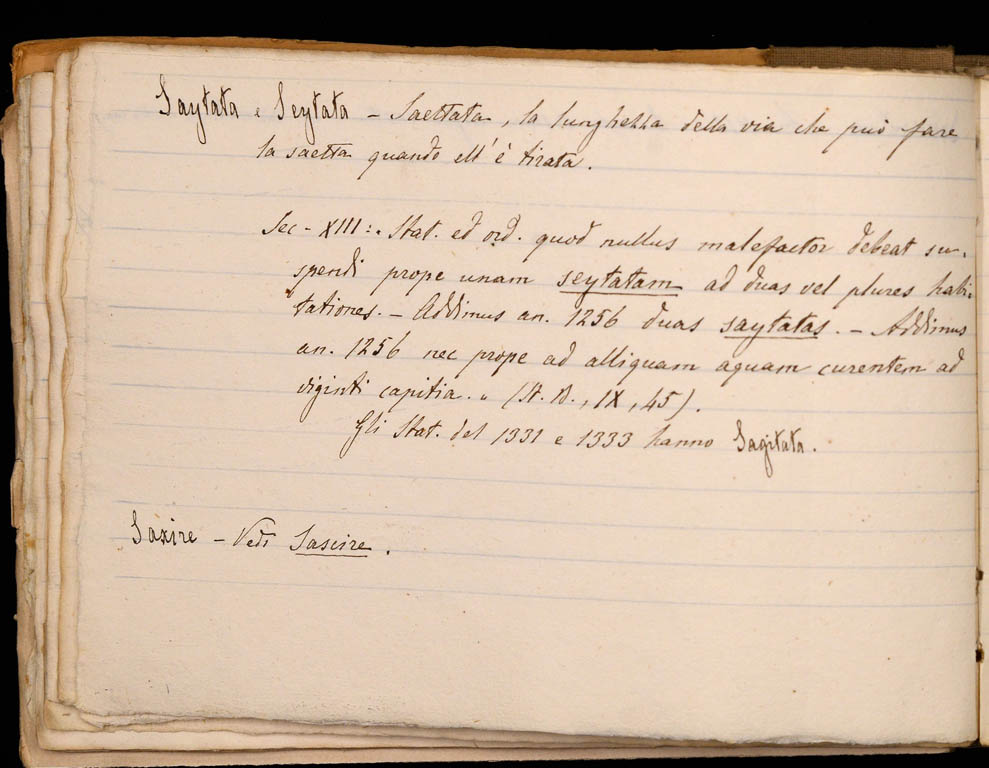 Saytata e Seytata – Saettata, la lunghezza della via che può fare
la saetta quando ell'è tirata.
Sec. XIII: „ Stat. ed ord. quod nullus malefactor debeat su-
spendi prope unam seytatam ad duas vel plures habi-
tationes. – Addimus an. 1256 duas saytatas. – Addimus
an. 1256 nec prope ad alliquam aquam curentem ad
viginti capitia. „ (St. B., IX, 45).
Gli Stat. del 1331 e 1333 hanno Sagitata.
Saxire – Vedi Sascire.